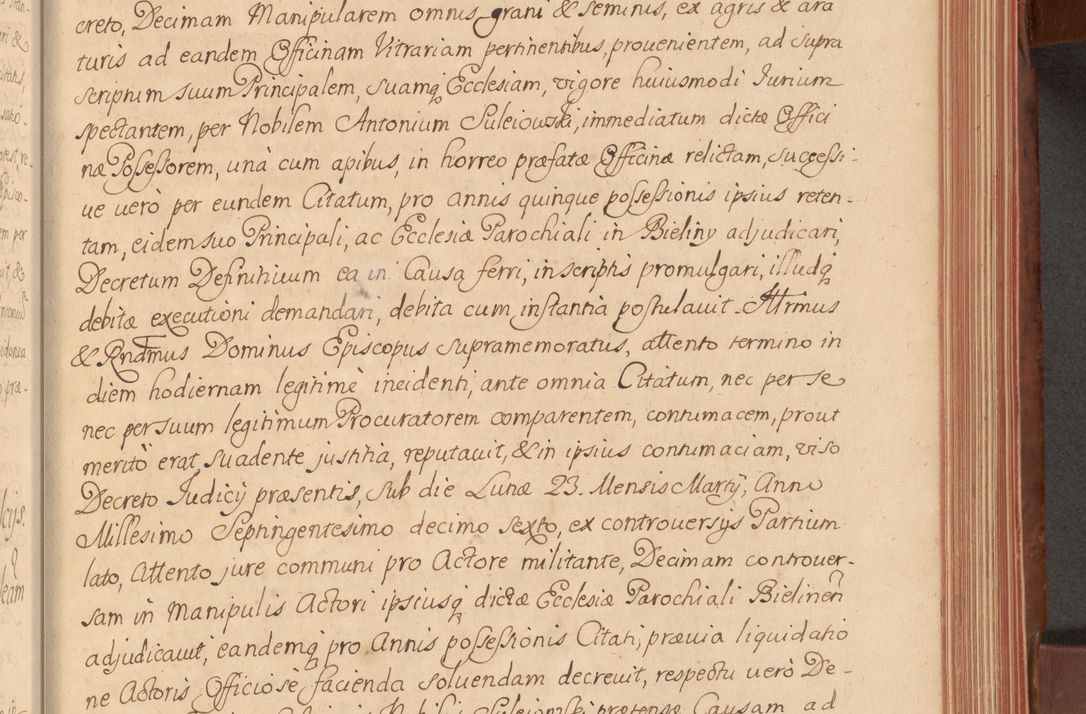 creto, Decimam Manipularem omnis grani & seminis, ex agris & ara
turis ad eandem Officinam Vitrariam pertinentibus, prouenientem, ad supra
scriptum suum Principalem, suamq Ecclesiam, vigore huiusmodi Iurium
spectantem, per Nobilem Antonium Suleiouski, immediatum dictæ Offici
næ Possessorem, unà cum apibus, in horreo præfatæ Officinæ relictam, successi-
ue uerò per eundem Citatum, pro annis quinque possessionis ipsius reten-
tam, eidem suo Principali, ac Ecclesiæ Parochiali in Bieliny adjudicari,
Decretum Definitiuum ea in Causa ferri, in scriptis promulgari, illudq
debitæ executioni demandari, debita cum instantia postulauit. Illrmus
& Rndmus Dominus Episcopus supramemoratus, attento termino in
diem hodiernam legitimè incidenti, ante omnia Citatum, nec per se
nec per suum legitimum Procuratorem comparentem, contumacem, prout
meritò erat, suadente justitia, reputauit, & in ipsius contumaciam, viso
Decreto Iudicij præsentis, sub die Lunæ 23. Mensis Martij, Anno
Millesimo Septingentesimo decimo sexto, ex controversijs Partium
lato, Attento jure communi pro Actore militante, Decimam controuer-
sam in Manipulis Actori ipsiusq dictæ Ecclesiæ Parochiali Bielinen
adjudicauit, eandemq pro Annis possessionis Citati, præuia liquidatio
ne Actoris Officiosè facienda soluendam decreuit, respectu uerò De-
Nobili Suleiouski prætensæ Causam ad